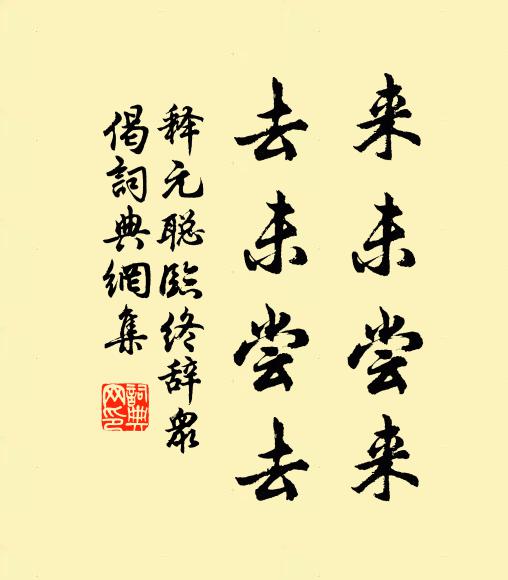 来未尝来
去未尝去
释元聪临终辞眾
偈詞典網集
詞典
网印